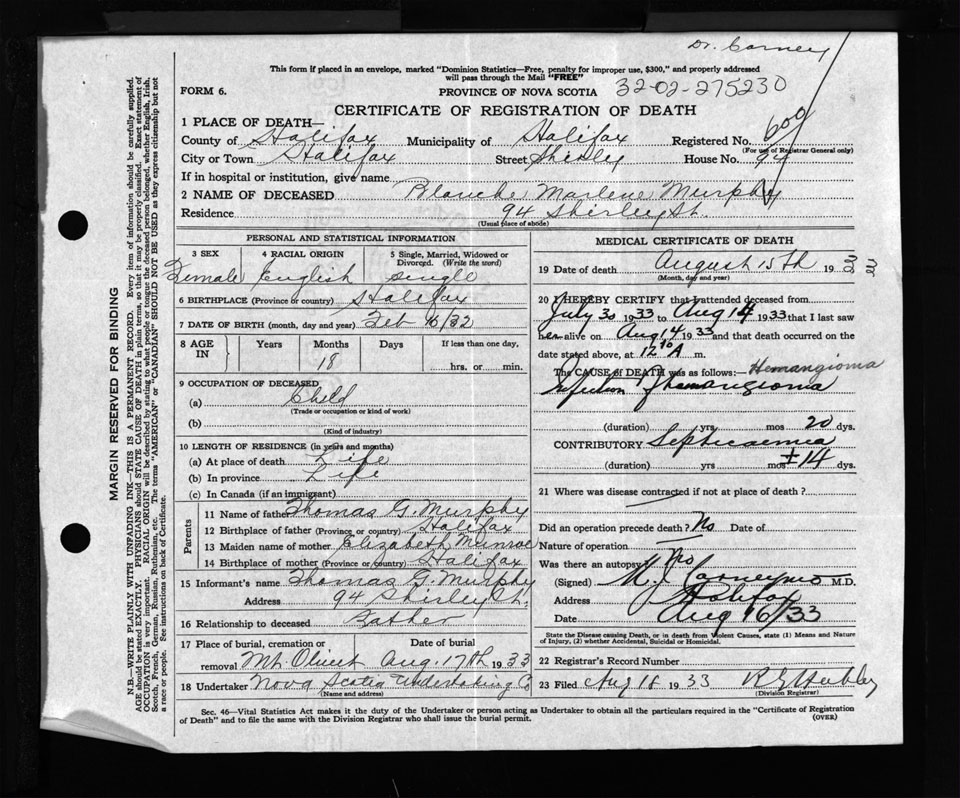 Dr. Carney
This form if placed in an envelope, marked "Dominion Statistics—Free, penalty for improper use, $300," and properly addressed
will pass through the Mail "FREE"
FORM 6.
PROVINCE OF NOVA SCOTIA
32-02-275230
CERTIFICATE OF REGISTRATION OF DEATH
1 PLACE OF DEATH—
County of Halifax Municipality of Halifax Registered No. 600
(For use of Registrar General only)
City or Town Halifax Street Shirley House No. 94
If in hospital or institution, give name
2 NAME OF DECEASED Blanche Marlene Murphy
Residence 94 Shirley St.
(Usual place of abode)
PERSONAL AND STATISTICAL INFORMATION
3 SEX 4 RACIAL ORIGIN 5 Single, Married, Widowed or Divorced. (Write the word)
Female English single
6 BIRTHPLACE (Province or country) Halifax
7 DATE OF BIRTH (month, day and year) Feb 16/32
8 AGE IN Years Months Days If less than one day,
18 hrs. or min.
9 OCCUPATION OF DECEASED
(a) Child
(Trade or occupation or kind of work)
(b)
(Kind of industry)
10 LENGTH OF RESIDENCE (in years and months)
(a) At place of death Life
(b) In province Life
(c) In Canada (if an immigrant)
Parents
11 Name of father Thomas G. Murphy
12 Birthplace of father (Province or country) Halifax
13 Maiden name of mother Elizabeth Munroe
14 Birthplace of mother (Province or country) Halifax
15 Informant's name Thomas G. Murphy
Address 94 Shirley St.
16 Relationship to deceased Father
17 Place of burial, cremation or Date of burial
removal Mt. Olivet Aug. 17th 1933
18 Undertaker Nova Scotia Undertaking Co
(Name and address)
MEDICAL CERTIFICATE OF DEATH
19 Date of death August 15th 1933
(Month, day and year)
20 I HEREBY CERTIFY that I attended deceased from
July 30 1933 to Aug 14 1933 that I last saw
her alive on Aug 14 1933 and that death occurred on the
date stated above, at 12 10 A m.
The CAUSE OF DEATH was as follows:— Hemangioma
Infection of hemangioma
(duration) yrs mos 20 dys.
CONTRIBUTORY Septicaemia
(duration) yrs mos ±14 dys.
21 Where was disease contracted if not at place of death?
Did an operation precede death? No Date of
Nature of operation
Was there an autopsy No
(Signed) M. J. Carney MD M.D.
Address Halifax
Date Aug 16/33
State the Disease causing Death, or in death from Violent Causes, state (1) Means and Nature of Injury, (2) whether Accidental, Suicidal or Homicidal.
22 Registrar's Record Number
23 Filed Aug 18 1933
(Division Registrar)
Sec. 46—Vital Statistics Act makes it the duty of the Undertaker or person acting as Undertaker to obtain all the particulars required in the "Certificate of Registration
of Death" and to file the same with the Division Registrar who shall issue the burial permit.
(OVER)
MARGIN RESERVED FOR BINDING
N.B.—WRITE PLAINLY WITH UNFADING INK—THIS IS A PERMANENT RECORD. Every item of information should be carefully supplied.
AGE should be stated EXACTLY. PHYSICIANS should STATE CAUSE OF DEATH in plain terms, so that it may be properly classified. Exact statement of
OCCUPATION is very important. RACIAL ORIGIN will be described by stating to what people or tongue the deceased person belonged, whether English, Irish,
Scotch, French, German, Russian, Ruthenian, etc. The terms "AMERICAN" or "CANADIAN" SHOULD NOT BE USED as they express citizenship but not
a race or people. See instructions on back of Certificate.